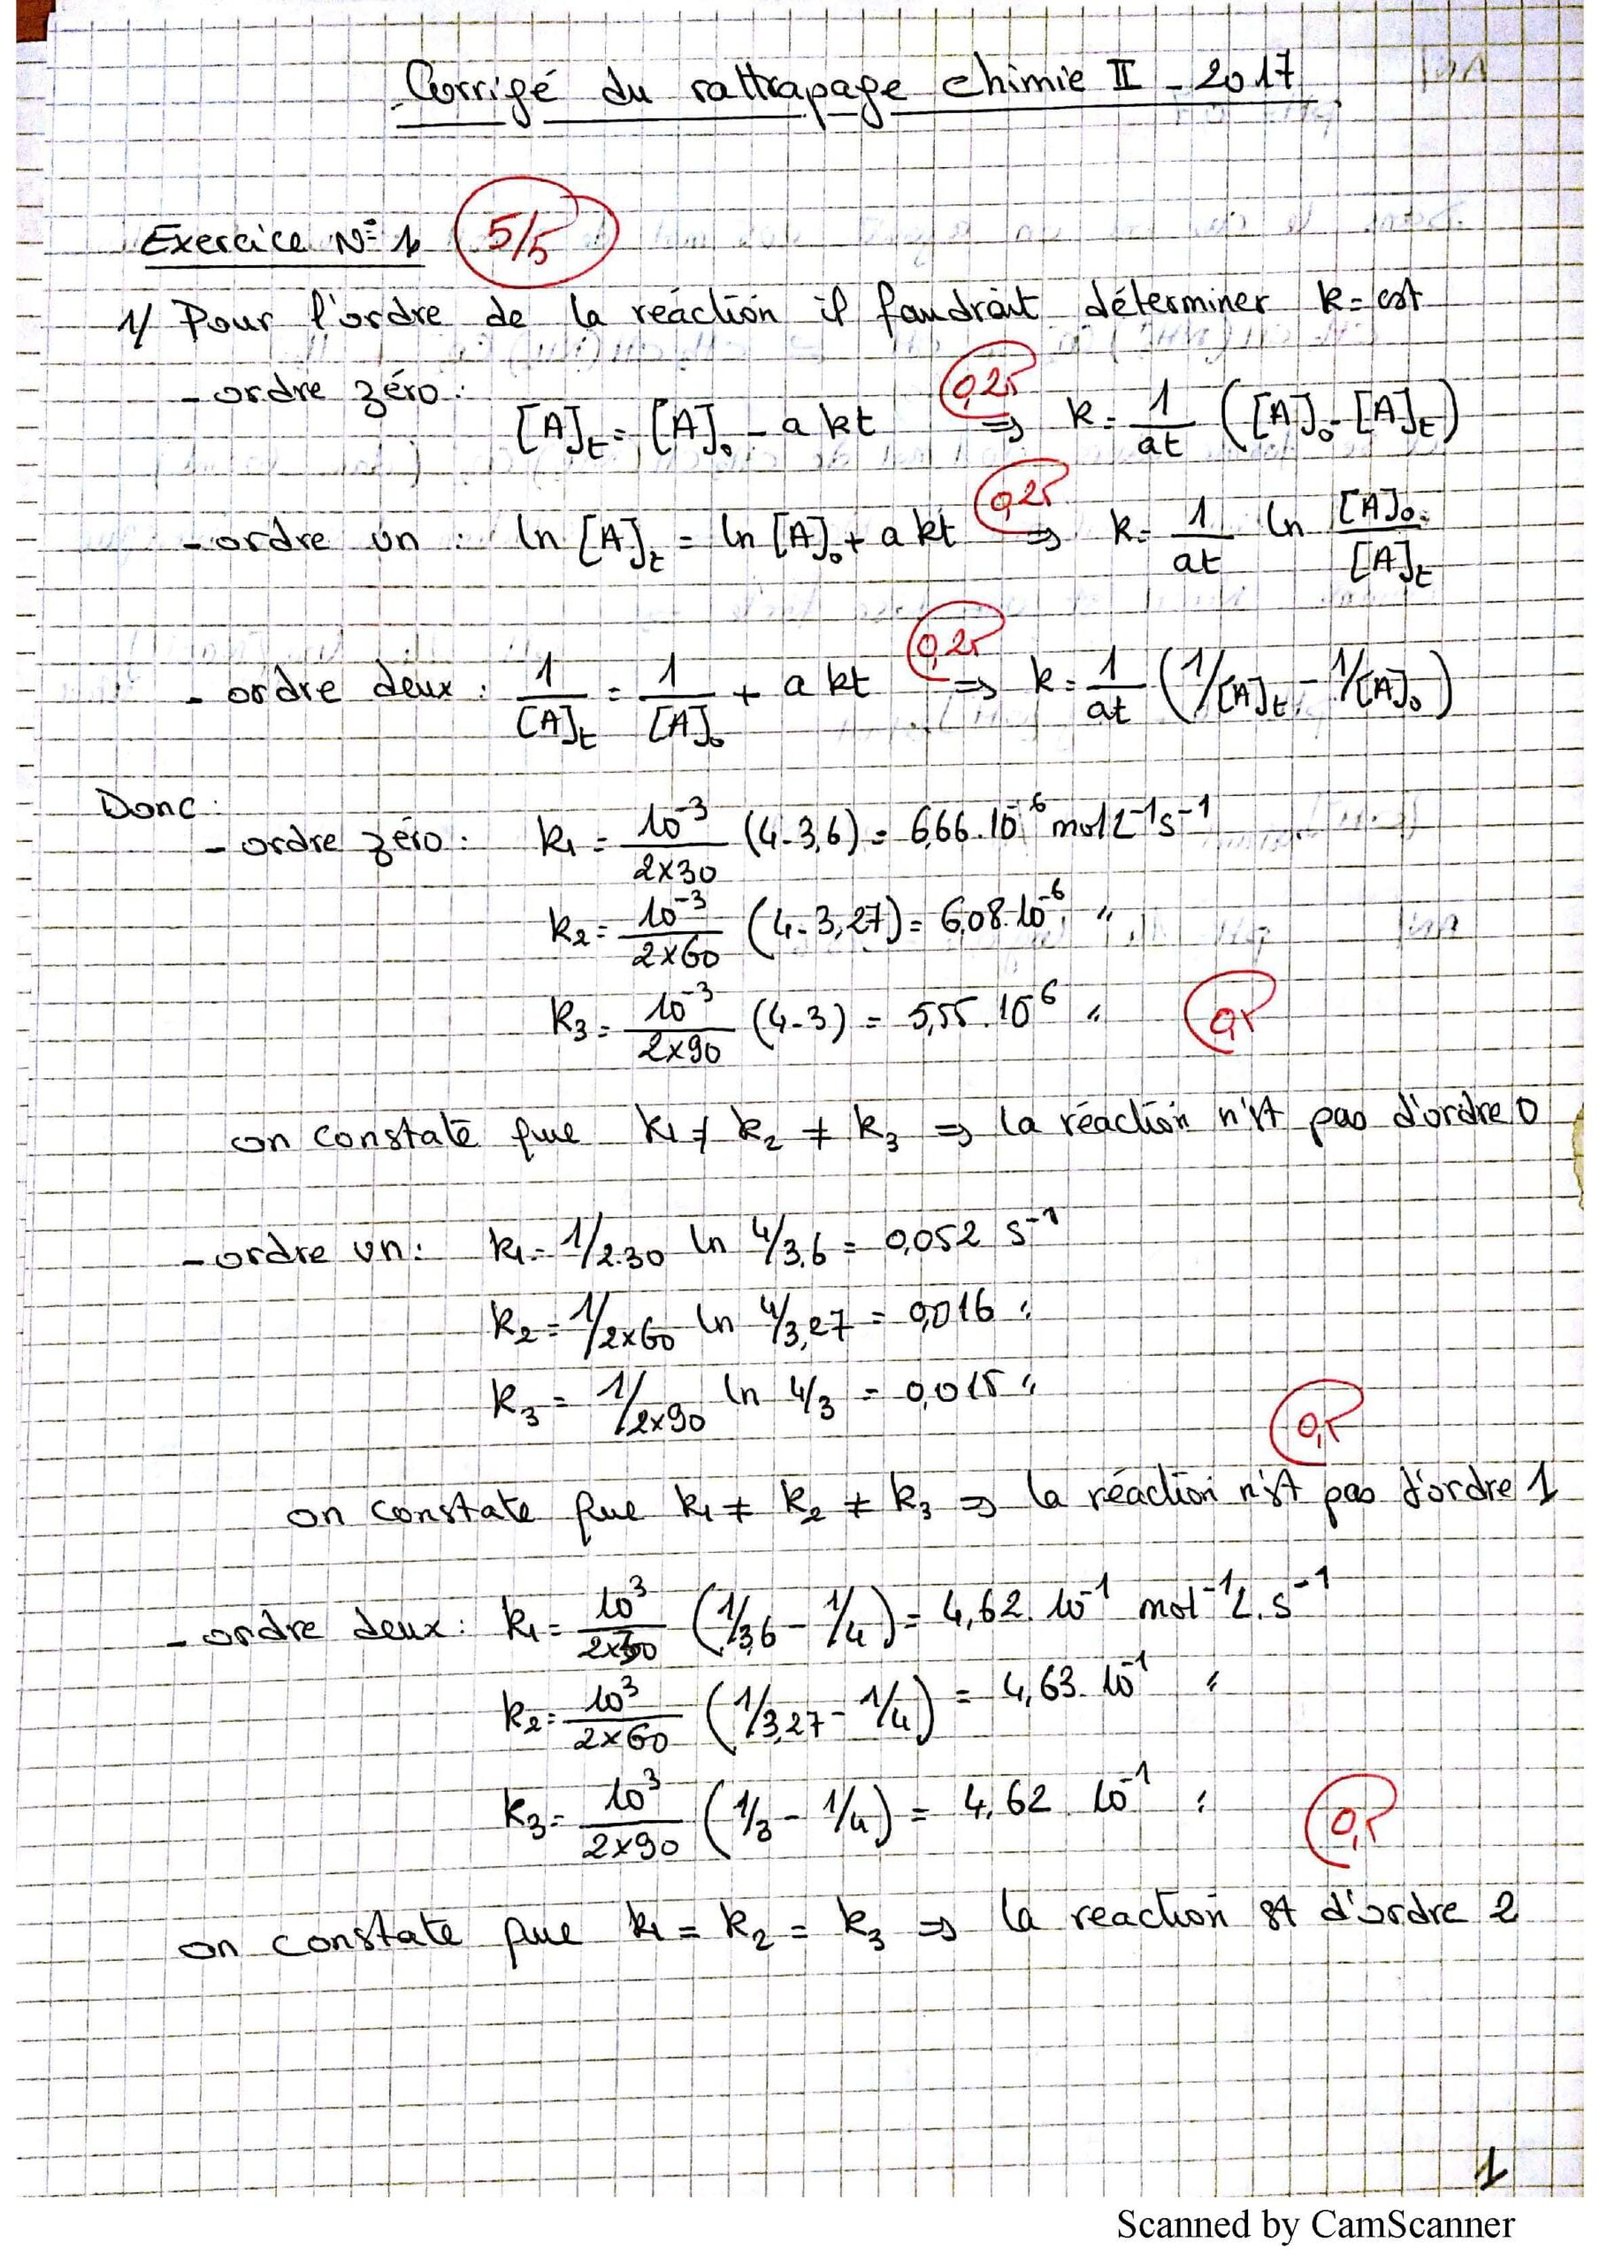 Corrigé du rattrapage chimie II - 2017
Exercice N° 1 5/5
1/ Pour l'ordre de la réaction il faudrait déterminer k = cst
- ordre zéro :
[A]t = [A]0 - a kt 0,25 ⇒ k = 1/at ([A]0 - [A]t)
- ordre un : ln [A]t = ln [A]0 + a kt 0,25 ⇒ k = 1/at ln [A]0/[A]t
- ordre deux : 1/[A]t = 1/[A]0 + a kt 0,25 ⇒ k = 1/at (1/[A]t - 1/[A]0)
Donc :
- ordre zéro : k1 = 10⁻³/2x30 (4-3,6) = 6,66.10⁻⁶ mol L⁻¹ s⁻¹
k2 = 10⁻³/2x60 (4-3,27) = 6,08.10⁻⁶ "
k3 = 10⁻³/2x90 (4-3) = 5,55.10⁻⁶ " 0,5
on constate que k1 ≠ k2 ≠ k3 ⇒ la réaction n'est pas d'ordre 0
- ordre un : k1 = 1/2.30 ln 4/3,6 = 0,052 s⁻¹
k2 = 1/2x60 ln 4/3,27 = 0,016 "
k3 = 1/2x90 ln 4/3 = 0,015 "
0,5
on constate que k1 ≠ k2 ≠ k3 ⇒ la réaction n'est pas d'ordre 1
- ordre deux : k1 = 10³/2x30 (1/3,6 - 1/4) = 4,62.10⁻¹ mol⁻¹ L.s⁻¹
k2 = 10³/2x60 (1/3,27 - 1/4) = 4,63.10⁻¹ "
k3 = 10³/2x90 (1/3 - 1/4) = 4,62 10⁻¹ " 0,5
on constate que k1 = k2 = k3 ⇒ la reaction est d'ordre 2
1
Scanned by CamScanner